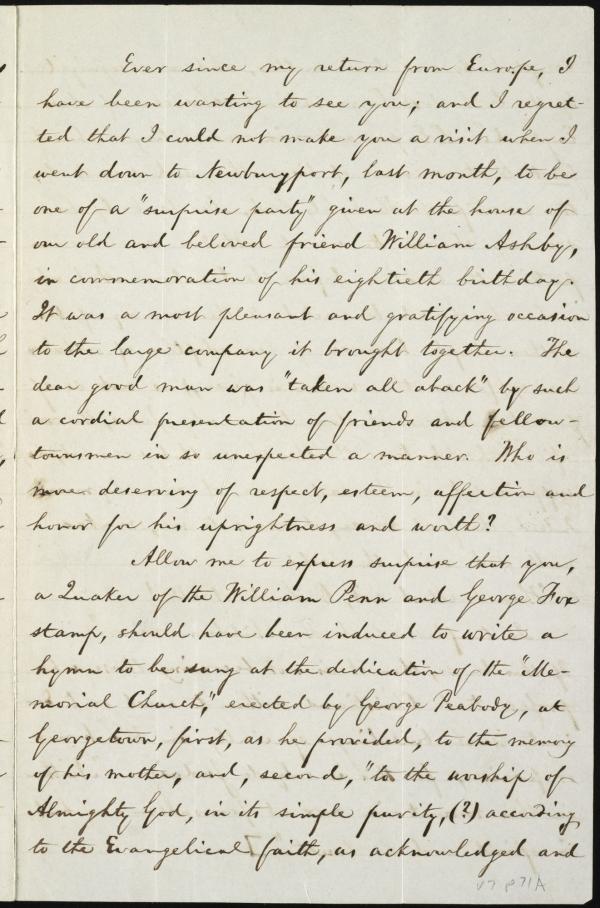 Ever since my return from Europe, I
have been wanting to see you; and I regret-
ted that I could not make you a visit when I
went down to Newburyport, last month, to be
one of a "surprise party" given at the house of
our old and beloved friend William Ashby,
in commemoration of his eightieth birthday.
It was a most pleasant and gratifying occasion
to the large company it brought together. The
dear good man was "taken all aback" by such
a cordial presentation of friends and fellow-
townsmen in so unexpected a manner. Who is
more deserving of respect, esteem, affection and
honor for his uprightness and worth?
Allow me to express surprise that you,
a Quaker of the William Penn and George Fox
stamp, should have been induced to write a
hymn to be sung at the dedication of the "Me-
morial Church," erected by George Peabody, at
Georgetown, first, as he provided, to the memory
of his mother, and, second, "to the worship of
Almighty God, in its simple purity, (?) according
to the Evangelical faith, as acknowledged and
v.7 p.71A